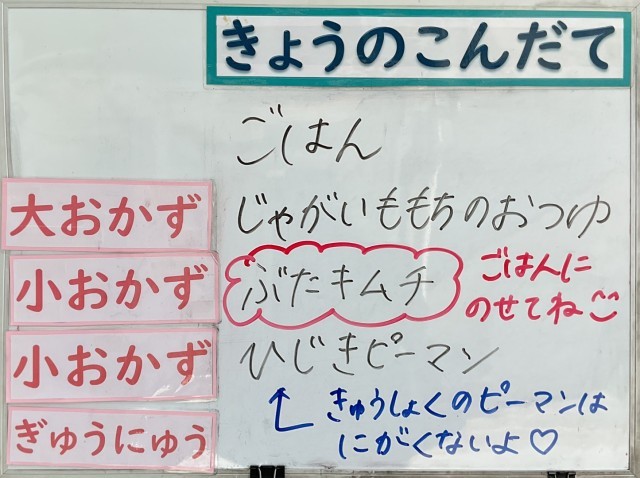 きょうのこんだて
ごはん
大おかず じゃがいももちのおつゆ
小おかず ぶたキムチ ごはんに
のせてね
小おかず ひじきピーマン
ぎゅうにゅう
きゅうしょくのピーマンは
にがくないよ♡